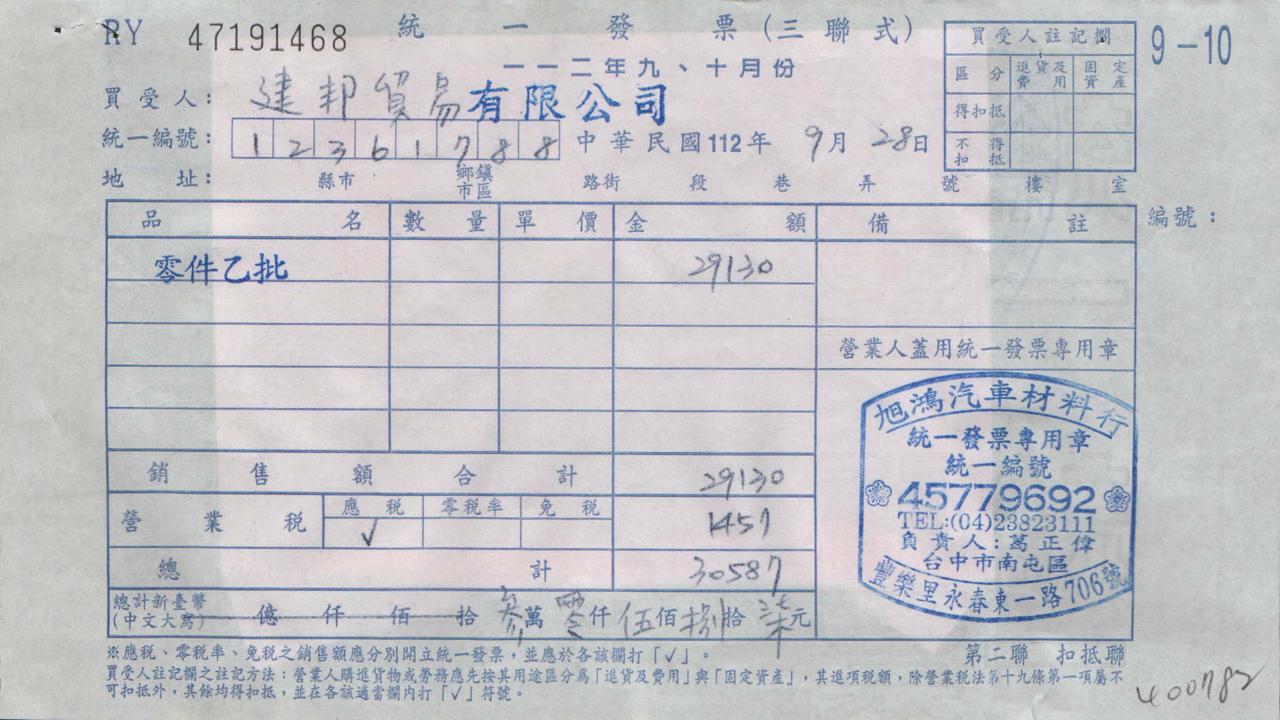 RY 47191468 統一發票(三聯式) 9-10
一一二年九、十月份
買受人註記欄
區分 進貨及費用 固定資產
得扣抵
不得扣抵
買受人: 建邦貿易有限公司
統一編號: 12361788 中華民國112年9月28日
地址: 縣市 鄉鎮市區 路街 段 巷 弄 號 樓 室
品名 數量 單價 金額 備註 編號:
零件乙批 29130
營業人蓋用統一發票專用章
銷售額合計 29130
營業稅 應稅 零稅率 免稅
√ 1457
總計 30587
總計新臺幣(中文大寫) 億 仟 佰 拾 參萬零仟伍佰捌拾柒元
旭鴻汽車材料行
統一發票專用章
統一編號
45779692
TEL:(04)23823111
負責人:葛正偉
台中市南屯區
豐樂里永春東一路706號
※應稅、零稅率、免稅之銷售額應分別開立統一發票,並應於各該欄打「√」。 第二聯 扣抵聯
買受人註記欄之註記方法:營業人購進貨物或勞務應先按其用途區分為「進貨及費用」與「固定資產」,其進項稅額,除營業稅法第十九條第一項屬不
可扣抵外,其餘均得扣抵,並在各該適當欄內打「√」符號。
400782